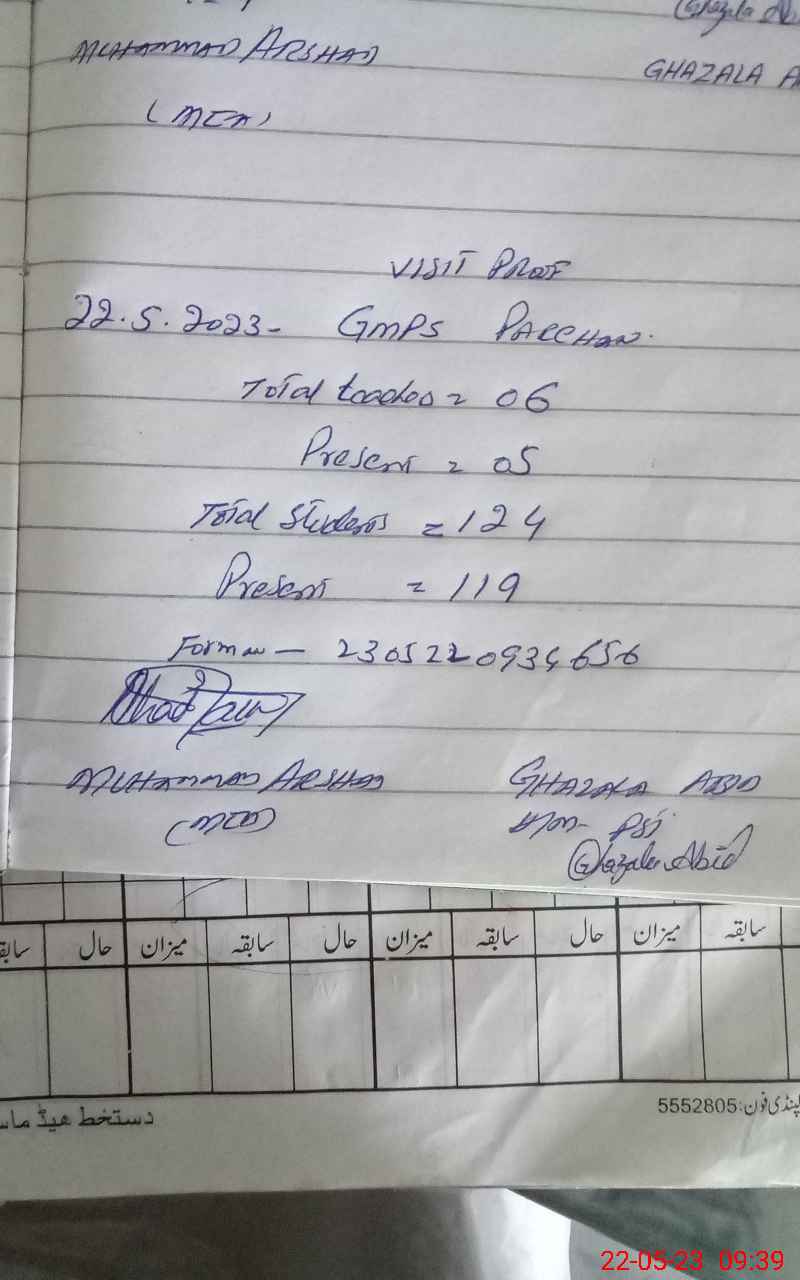 Ghazala Ab
MUHAMMAD ARSHAD
GHAZALA A
(MEA)
VISIT PROOF
22.5.2023- GMPS PARCHAN.
Total teacher = 06
Present = 05
Total Students = 124
Present = 119
Form no — 2305220934656
MUHAMMAD ARSHAD
GHAZALA ABID
(MEA)
H/M- PST
Ghazala Abid
سابقہ حال میزان سابقہ حال میزان سابقہ حال میزان سابقہ
دستخط ہیڈ ماس
پنڈی فون:5552805
22-05-23 09:39